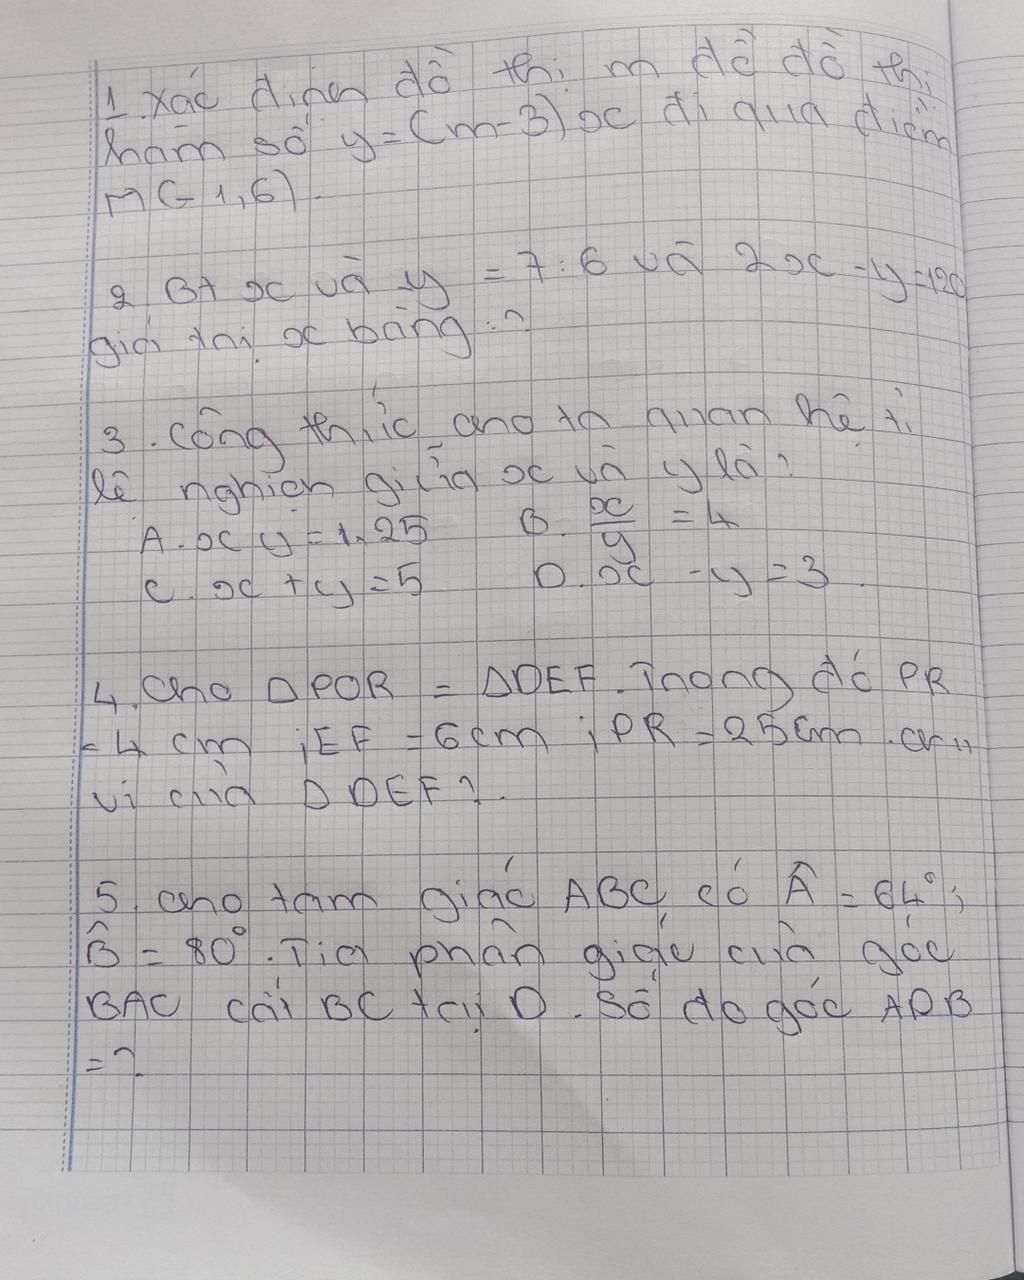 1. Xác định đồ thị m để đồ thị
hàm số y = (m - 3)x đi qua điểm
M(-1, 6).
2 Bt x và y = 7 : 6 và 2x - y = 120
giá trị x bằng : ?
3. Công thức cho ta quan hệ tỉ
lệ nghịch giữa x và y là?
A. x y = 1,25 B. x/y = 4
C. x + y = 5 D. x - y = 3
4. Cho Δ PQR = ΔDEF. Trong đó PR
= 4 cm ; EF = 6cm ; PR = 25cm . chu
vi của Δ DEF?.
5. cho tam giác ABC có Â = 64° ;
B̂ = 80°. Tia phân giác của góc
BAC cắt BC tại D. Số đo góc ADB
= ?